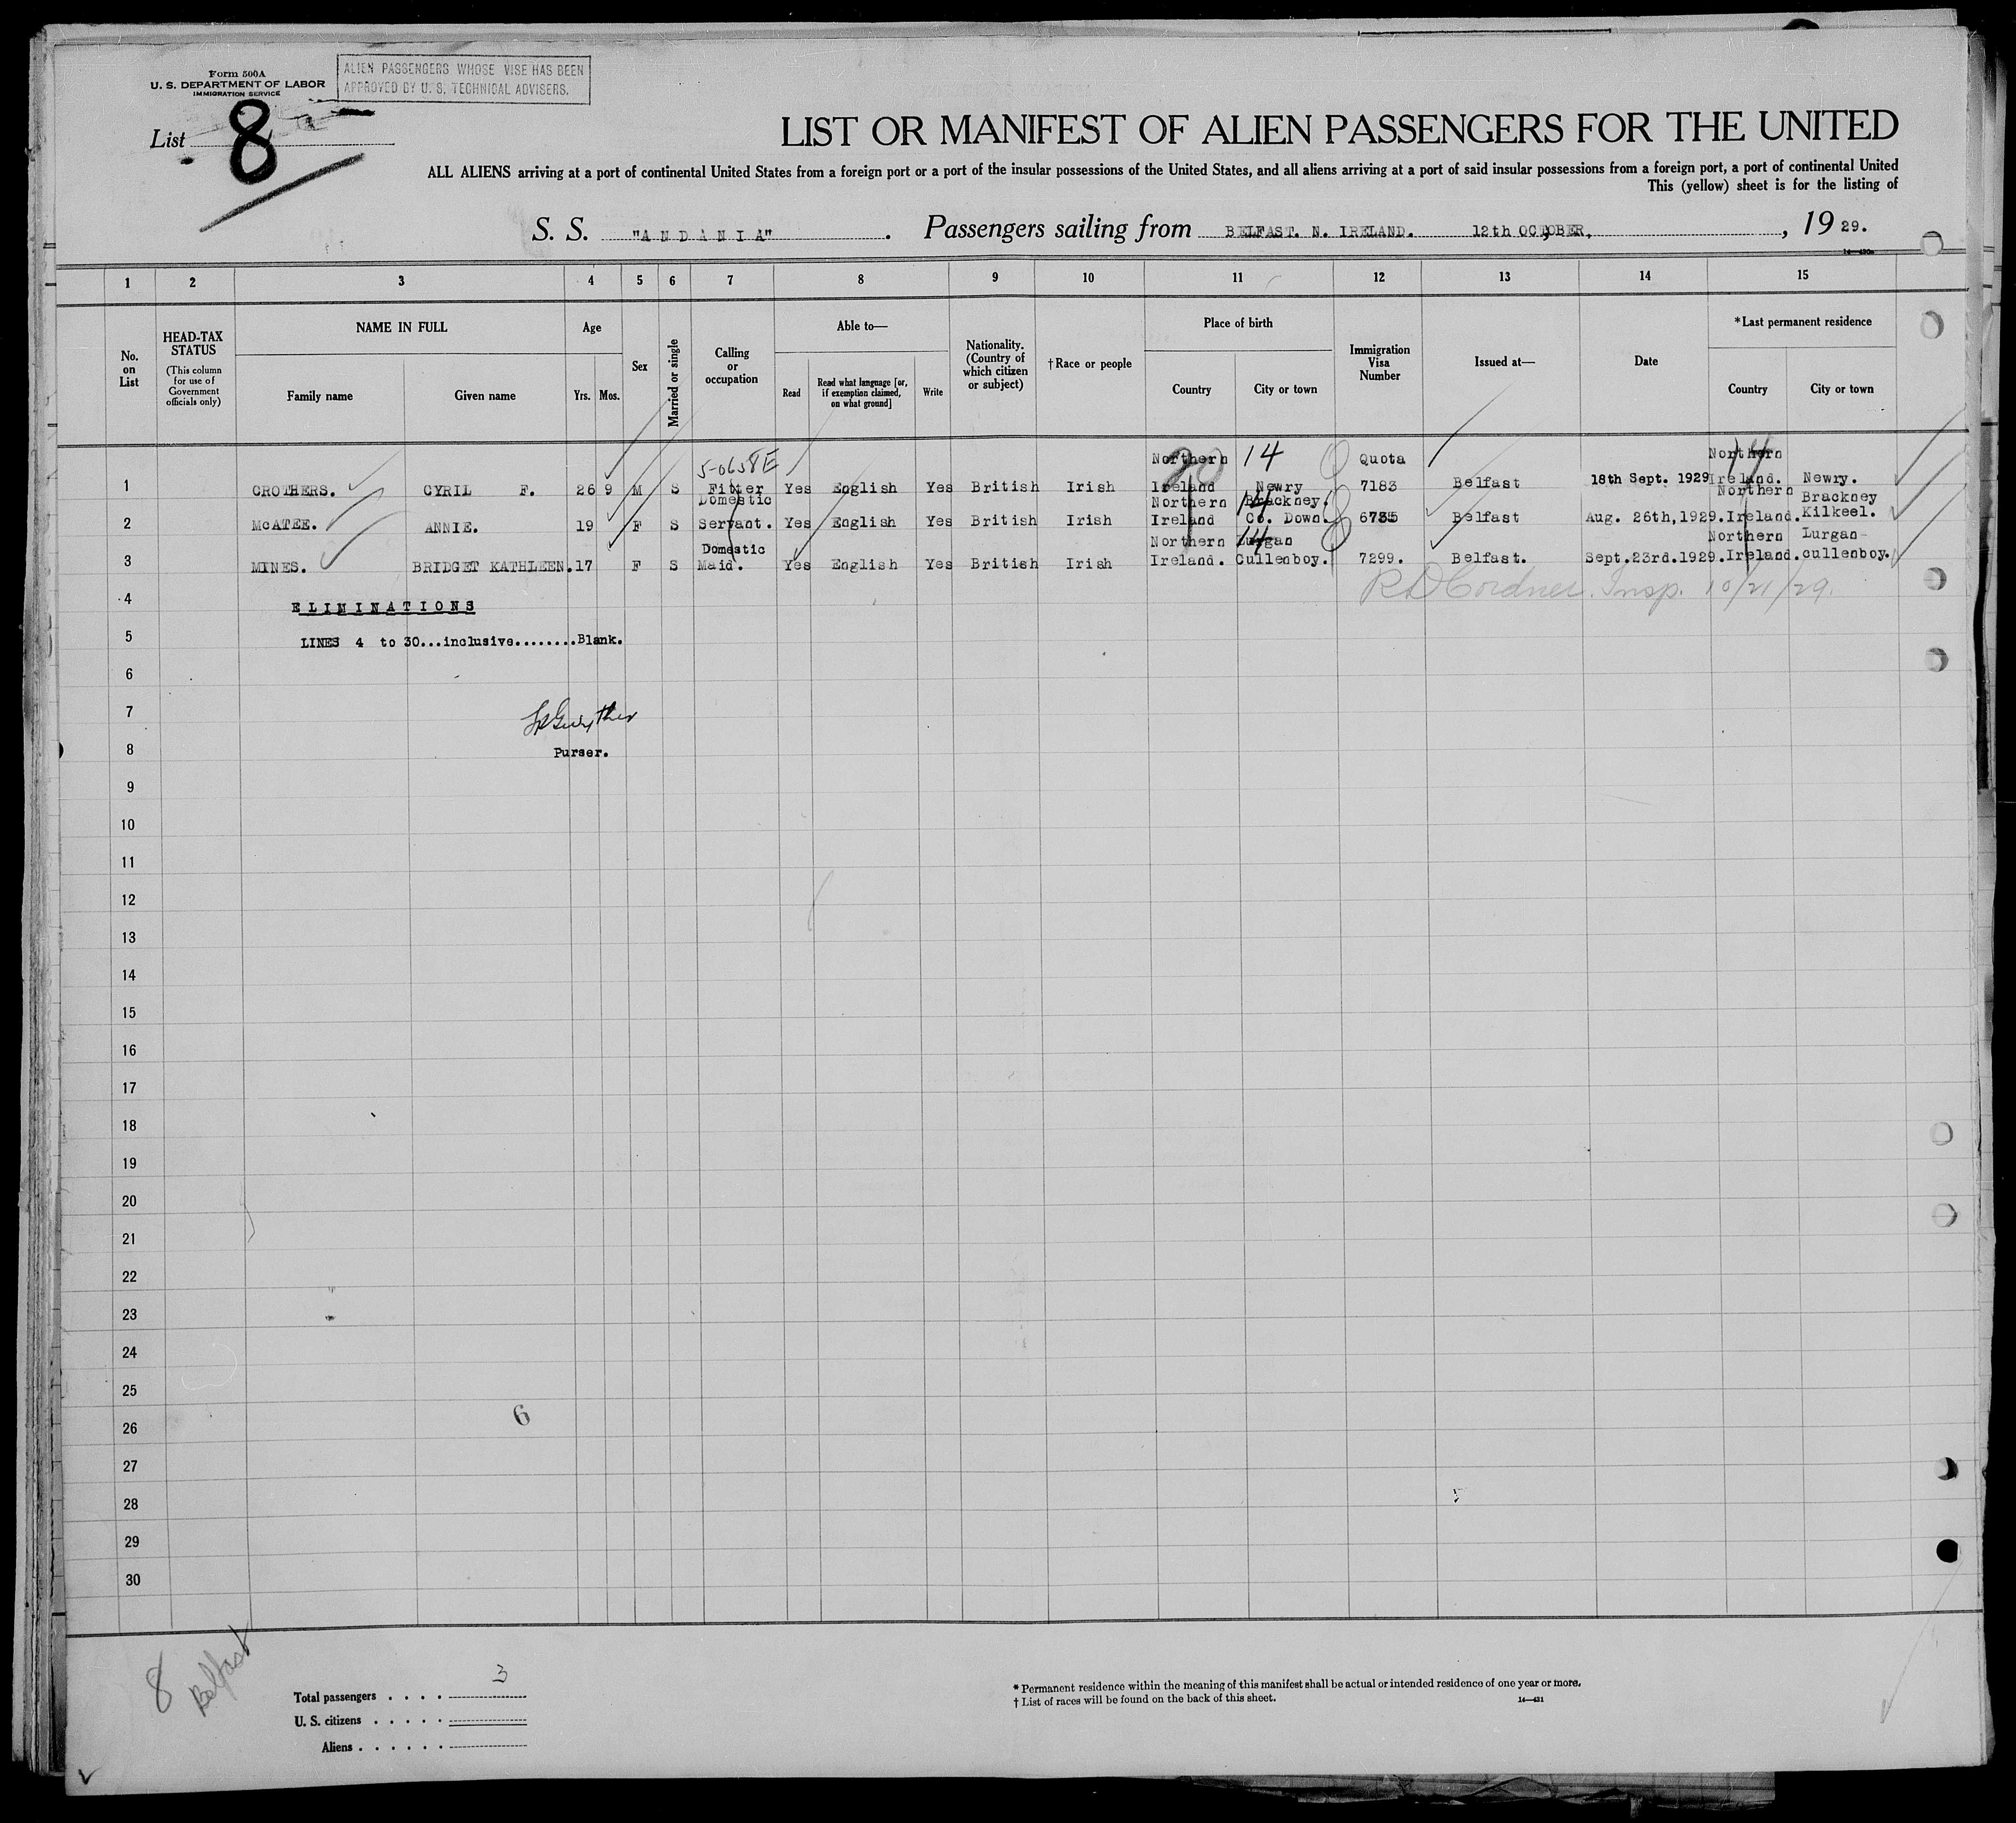 Form 500A
U. S. DEPARTMENT OF LABOR
IMMIGRATION SERVICE
ALIEN PASSENGERS WHOSE VISE HAS BEEN
APPROVED BY U. S. TECHNICAL ADVISERS.
List 8
LIST OR MANIFEST OF ALIEN PASSENGERS FOR THE UNITED
ALL ALIENS arriving at a port of continental United States from a foreign port or a port of the insular possessions of the United States, and all aliens arriving at a port of said insular possessions from a foreign port, a port of continental United
This (yellow) sheet is for the listing of
S. S. "ANDANIA" . Passengers sailing from BELFAST. N. IRELAND. 12th OCTOBER, , 19 29.
14—430a
1 2 3 4 5 6 7 8 9 10 11 12 13 14 15
No. on List
HEAD-TAX STATUS
(This column for use of Government officials only)
NAME IN FULL
Family name Given name
Age
Yrs. Mos.
Sex
Married or single
Calling or occupation
Able to—
Read
Read what language [or, if exemption claimed, on what ground]
Write
Nationality. (Country of which citizen or subject)
†Race or people
Place of birth
Country City or town
Immigration Visa Number
Issued at—
Date
*Last permanent residence
Country City or town
5-0658E 20 Northern 14 Quota Northern 14
1 CROTHERS. CYRIL F. 26 9 M S Fitter Yes English Yes British Irish Ireland Newry 7183 Belfast 18th Sept. 1929 Ireland. Newry.
Domestic Northern Brackney. 14 Northern Brackney
2 McATEE. ANNIE. 19 F S Servant. Yes English Yes British Irish Ireland Co. Down. 6735 Belfast Aug. 26th,1929. Ireland. Kilkeel.
Domestic Northern Lurgan 14 Northern Lurgan-
3 MINES. BRIDGET KATHLEEN. 17 F S Maid. Yes English Yes British Irish Ireland. Cullenboy. 7299. Belfast. Sept.23rd.1929. Ireland. cullenboy.
R D Cordner. Insp. 10/21/29.
4 ELIMINATIONS
5 LINES 4 to 30...inclusive........Blank.
6
7
8 Purser.
9
10
11
12
13
14
15
16
17
18
19
20
21
22
23
24
25
26 6
27
28
29
30
8 Belfast
Total passengers . . . . 3
U. S. citizens . . . . .
Aliens . . . . . .
* Permanent residence within the meaning of this manifest shall be actual or intended residence of one year or more.
† List of races will be found on the back of this sheet. 14—431